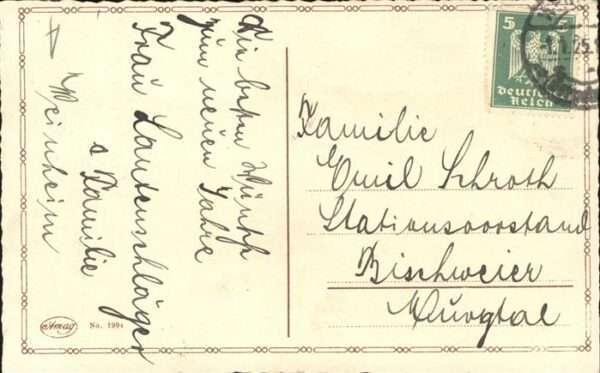 Die besten Wünsche
zum neuen Jahre
Frau Lautenschläger
& Familie
Weinheim
Amag
No. 1994
5
Deutsches
Reich
1.25.
Familie
Emil Schroth
Stationsvorstand
Bischweier
Murgtal